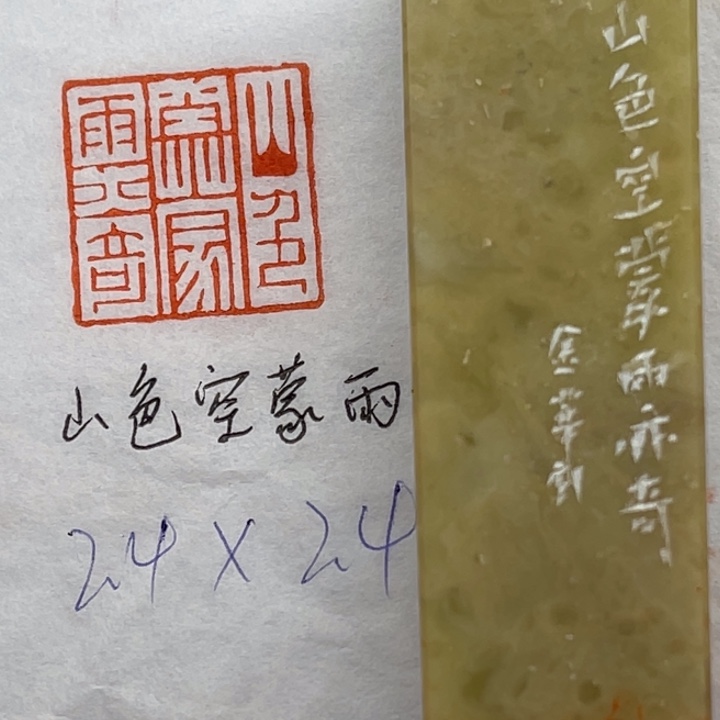 山色空蒙雨亦奇
山色空蒙雨
24 X 24
山色空蒙雨亦奇